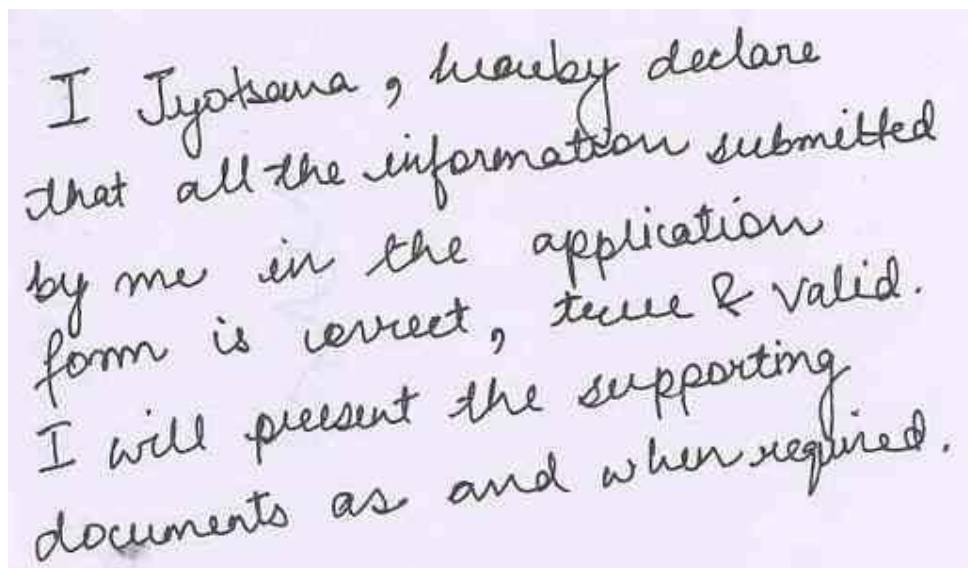 I Jyotsana, hereby declare
that all the information submitted
by me in the application
form is correct, true & valid.
I will present the supporting
documents as and when required.